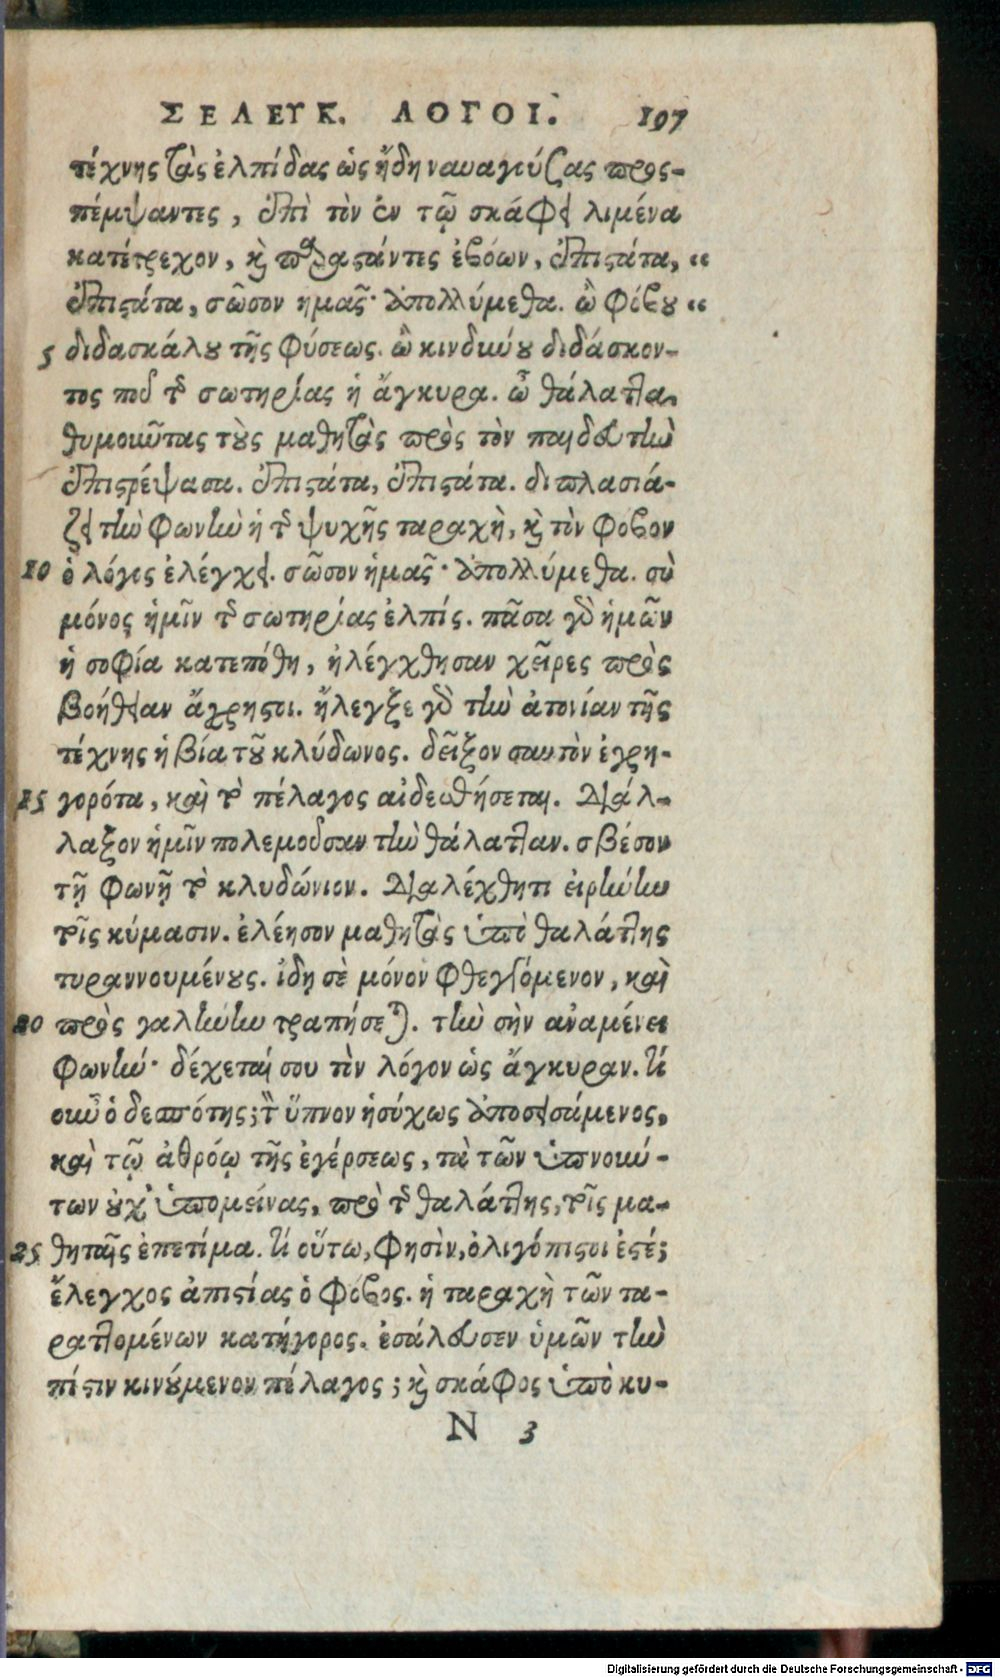 ΣΕΛΕΥΚ. ΛΟΓΟΙ. 197
τέχνης τὰς ἐλπίδας ὡς ἤδη ναυαγούσας προς-
πέμψαντες, ἐπὶ τὸν ἐν τῷ σκάφει λιμένα
κατέτρεχον, καὶ παραστάντες ἐβόων, ἐπιστάτα, "
ἐπιστάτα, σῶσον ημᾶς· ἀπολλύμεθα. ὢ φόβου "
5 διδασκάλου τῆς φύσεως. ὢ κινδύνου διδάσκον-
τος ποῦ τῆς σωτηρίας ἡ ἄγκυρα. ὦ θάλαττα
θυμουῦτας τοὺς μαθητὰς πρὸς τὸν παιδευτὴν
ἐπιστρέψασα. ἐπιστάτα, ἐπιστάτα. διπλασιά-
ζει τὴν φωνὴν ἡ τῆς ψυχῆς ταραχὴ, καὶ τὸν φόβον
10 ὁ λόγος ἐλέγχει. σῶσον ἡμᾶς· ἀπολλύμεθα. σὺ
μόνος ἡμῖν τῆς σωτηρίας ἐλπίς. πᾶσα γὰρ ἡμῶν
ἡ σοφία κατεπόθη, ἠλέγχθησαν χεῖρες πρὸς
βοήθειαν ἄχρηστοι. ἤλεγξε γὰρ τὴν ἀτονίαν τῆς
τέχνης ἡ βία τοῦ κλύδωνος. δεῖξον σαυτὸν ἐγρη-
15 γορότα, καὶ τὸ πέλαγος αἰδεσθήσεται. διάλ-
λαξον ἡμῖν πολεμοῦσαν τὴν θάλατταν. σβέσον
τῇ φωνῇ τὸ κλυδώνιον. διαλέχθητι εἰρήνην
τοῖς κύμασιν. ἐλέησον μαθητὰς ὑπὸ θαλάττης
τυραννουμένους. ἴδῃ σὲ μόνον φθεγγόμενον, καὶ
20 πρὸς γαλήνην τραπήσεται. τὴν σὴν ἀναμένει
φωνήν· δέχεταί σου τὸν λόγον ὡς ἄγκυραν. τί
οὖν ὁ δεσπότης; τὸν ὕπνον ἡσύχως ἀποσεισάμενος,
καὶ τῷ ἀθρόῳ τῆς ἐγέρσεως, τὰ τῶν ὑπνούν-
των οὐχ' ὑπομείνας, πρὸ τῆς θαλάττης, τοῖς μα-
25 θηταῖς ἐπετίμα. τί οὕτω, φησὶν, ὀλιγόπιστοι ἐστέ;
ἔλεγχος ἀπιστίας ὁ φόβος. ἡ ταραχὴ τῶν τα-
ραττομένων κατήγορος. ἐσάλευσεν ὑμῶν τὴν
πίστιν κινούμενον πέλαγος; καὶ σκάφος ὑπὸ κυ-
N 3
Digitalisierung gefördert durch die Deutsche Forschungsgemeinschaft - DFG